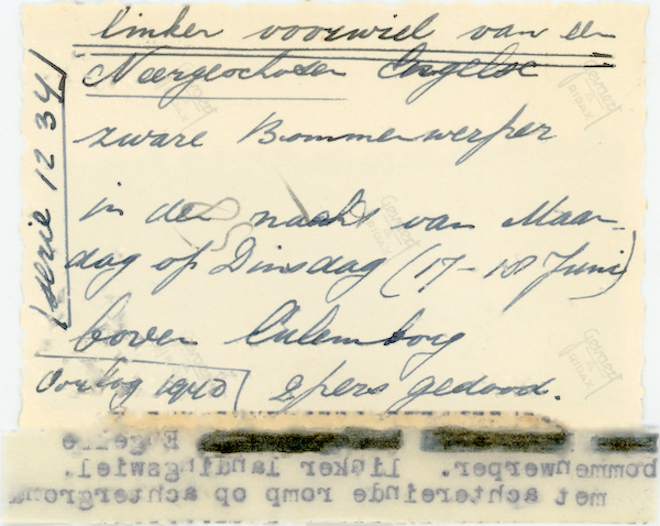 linker voorwiel van een
Neergeschoten Engelse
zware Bommenwerper
in de nacht van Maan-
dag op Dinsdag (17-18 Juni)
boven Culemborg
Oorlog 1940 2 pers gedood.
serie 1234
Gevaert
RIDAX
Gevaert
RIDAX
Gevaert
RIDAX
Engelse
bommenwerper. linker landingswiel.
met achtereinde romp op achtergrond